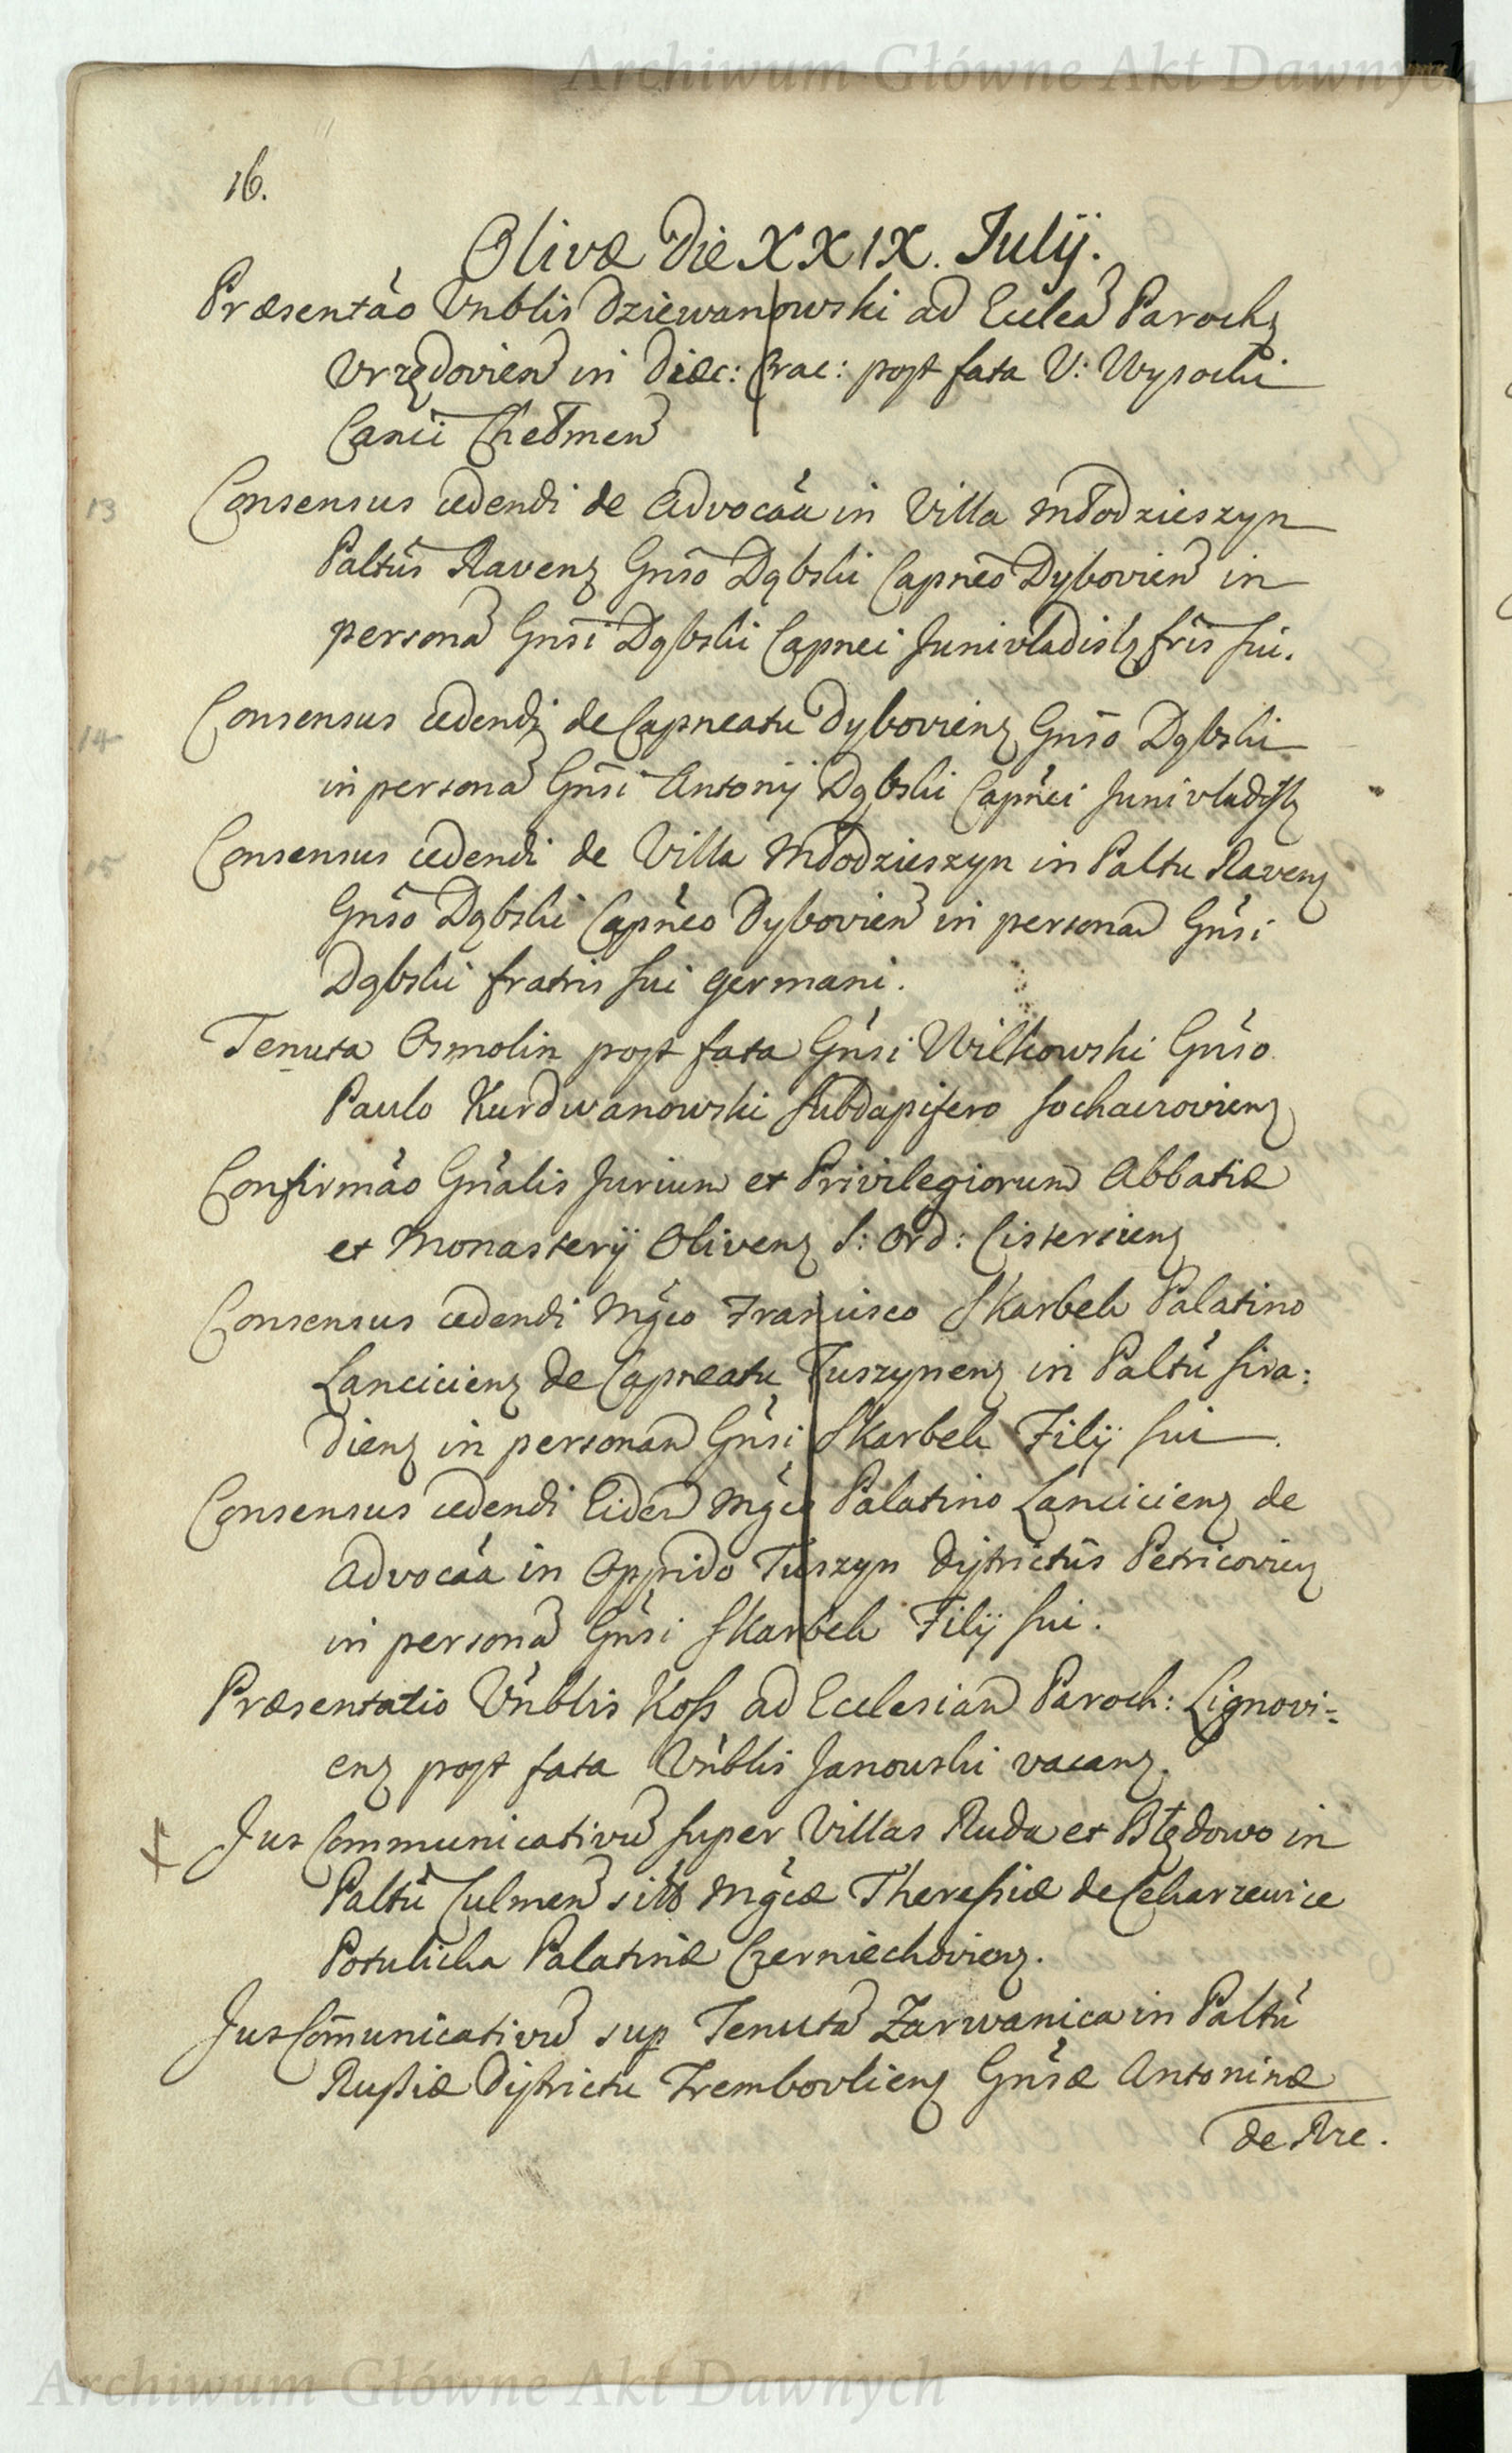 Archiwum Główne Akt Dawnych
16.
Olivæ Die XXIX. Julij.
Præsentão Vnblis Dziewanowski ad Eccleã Paroch;
Vrzędovien in Diæc: Crac: post fata V: Wysocki
Canci Chełmen
13 Consensus cedendi de Advocãa in Villa Młodzieszyn
Paltus Raven; Gnso Dąbski Capneo Dybovien in
persona Gnsi Dąbski Capnei Junivladisl; fris sui.
14 Consensus cedendi de Capneatu Dybovien; Gnso Dąbski
in persona Gnsi Antonij Dąbski Capnei Junivladisl;
15 Consensus cedendi de Villa Młodzieszyn in Paltu Raven;
Gnso Dąbski Capneo Dybovien in personam Gnsi
Dąbski fratris sui germani.
Tenuta Osmolin post fata Gnsi Wilkowski Gnso
Paulo Kurdwanowski Subdapifero Sochaczovien;
Confirmão Gnalis Jurium et Privilegiorum Abbatiæ
et Monasterij Oliven; S: Ord: Cistercien;
Consensus cedendi Mgco Francisco Skarbek Palatino
Lancicien; de Capneatu Tuszynen; in Paltu Sira:
dien; in personam Gnsi Skarbek Filij sui.
Consensus cedendi Eidem Mgco Palatino Lancicien; de
Advocãa in Oppido Tuszyn Districtus Petricovien;
in persona Gnsi Skarbek Filij sui.
Præsentatio Vnblis Koss ad Ecclesiam Paroch: Lignovi-
en; post fata Vnblis Janowski vacan;.
Jus Communicativu super Villas Ruda et Błędowo in
Paltu Culmen sitas Mgcæ Theressiæ de Cetharzewice
Potulicka Palatinæ Czerniechovien;.
Jus Comunicativu sup Tenuta Zarwanica in Paltu
Russiæ Districtu Trembovlien; Gnsæ Antoninæ
de Rze.
Archiwum Główne Akt Dawnych